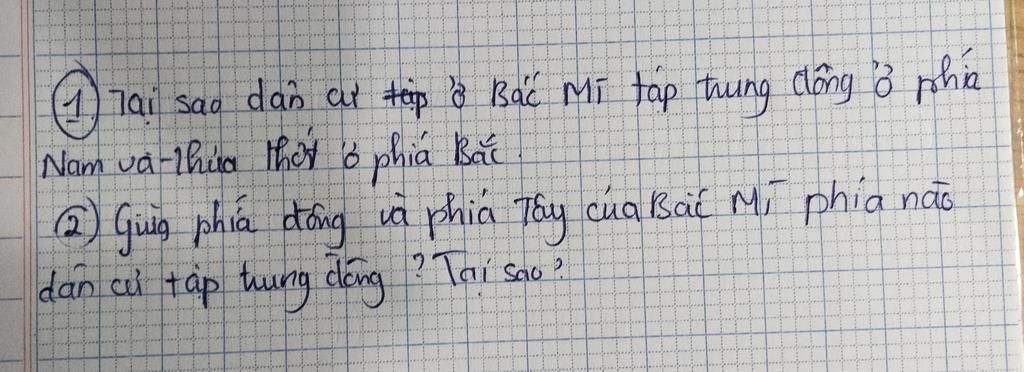 ① Tại sao dân cư ở Bắc Mĩ tập trung đông ở phía
Nam và thưa thớt ở phía Bắc.
② Giữa phía đông và phía Tây của Bắc Mĩ phía nào
dân cư tập trung đông? Tại sao?